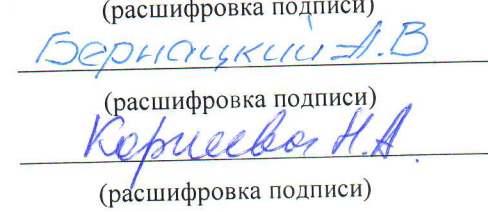 (расшифровка подписи)
Бернацкий А.В
(расшифровка подписи)
Корнеева Н.А.
(расшифровка подписи)